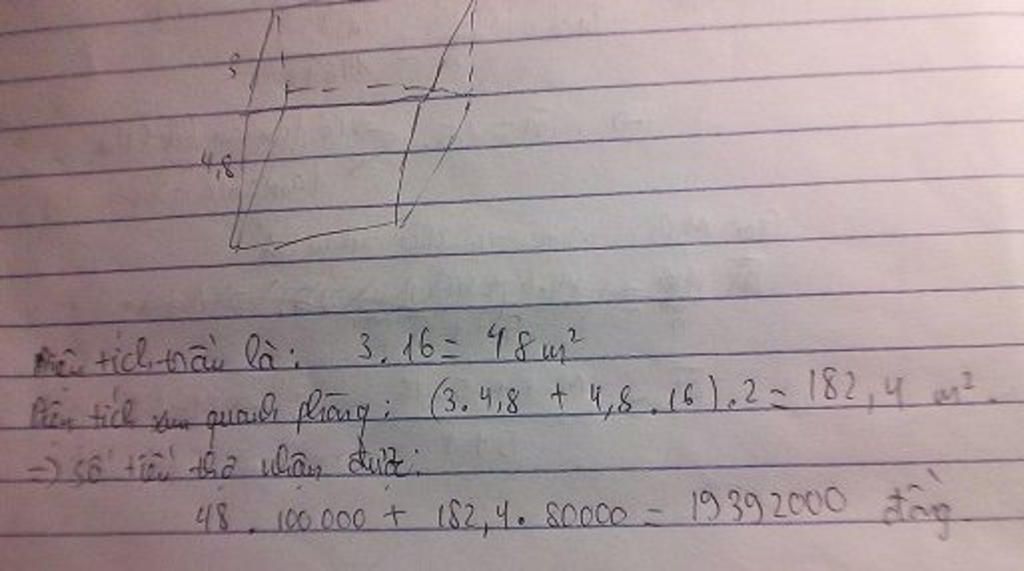 3
4,8
Diện tích trần là: 3.16 = 48 m²
Diện tích xung quanh phòng: (3.4,8 + 4,8.16).2 = 182,4 m².
=) số tiền thợ nhận được:
48 . 100.000 + 182,4. 80000 = 19392000 đồng